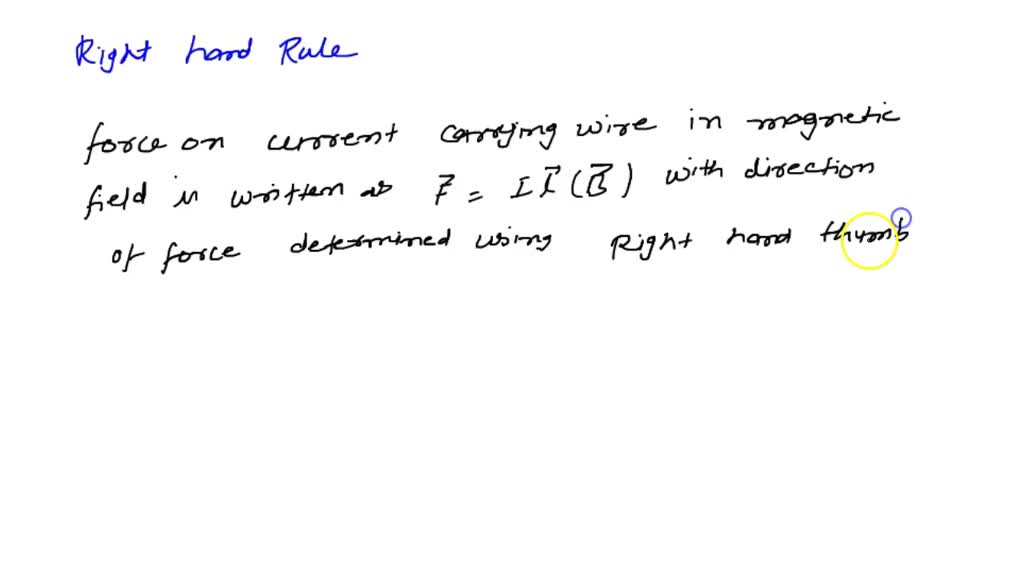 Right hand Rule
force on current carrying wire in magnetic
field is written as F⃗ = I l⃗ (B⃗) with direction
of force determined using Right hand thumb